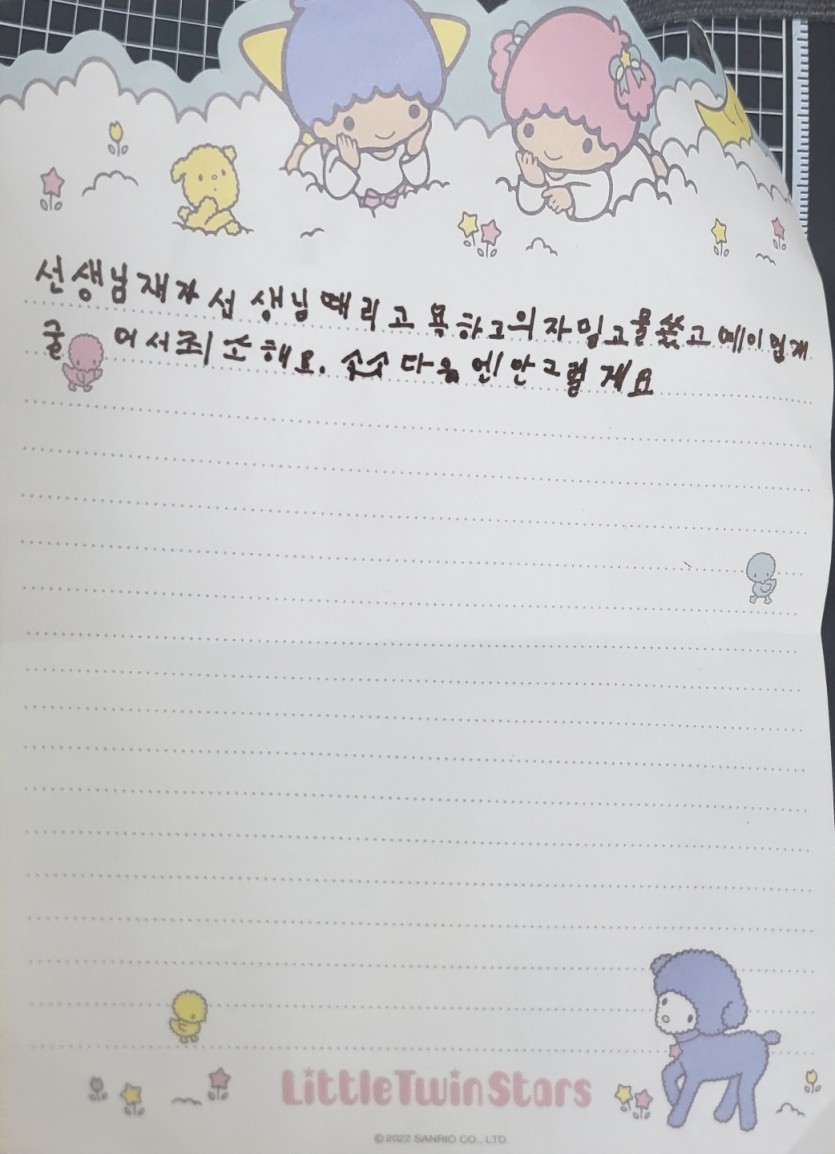 선생님 재가 선생님 때리고 욕하고 의자 밀고 물 쏬고 예이 업게
굴어서 죄소해요. 다음엔 안그럴게요
LittleTwinStars
© 2022 SANRIO CO., LTD.